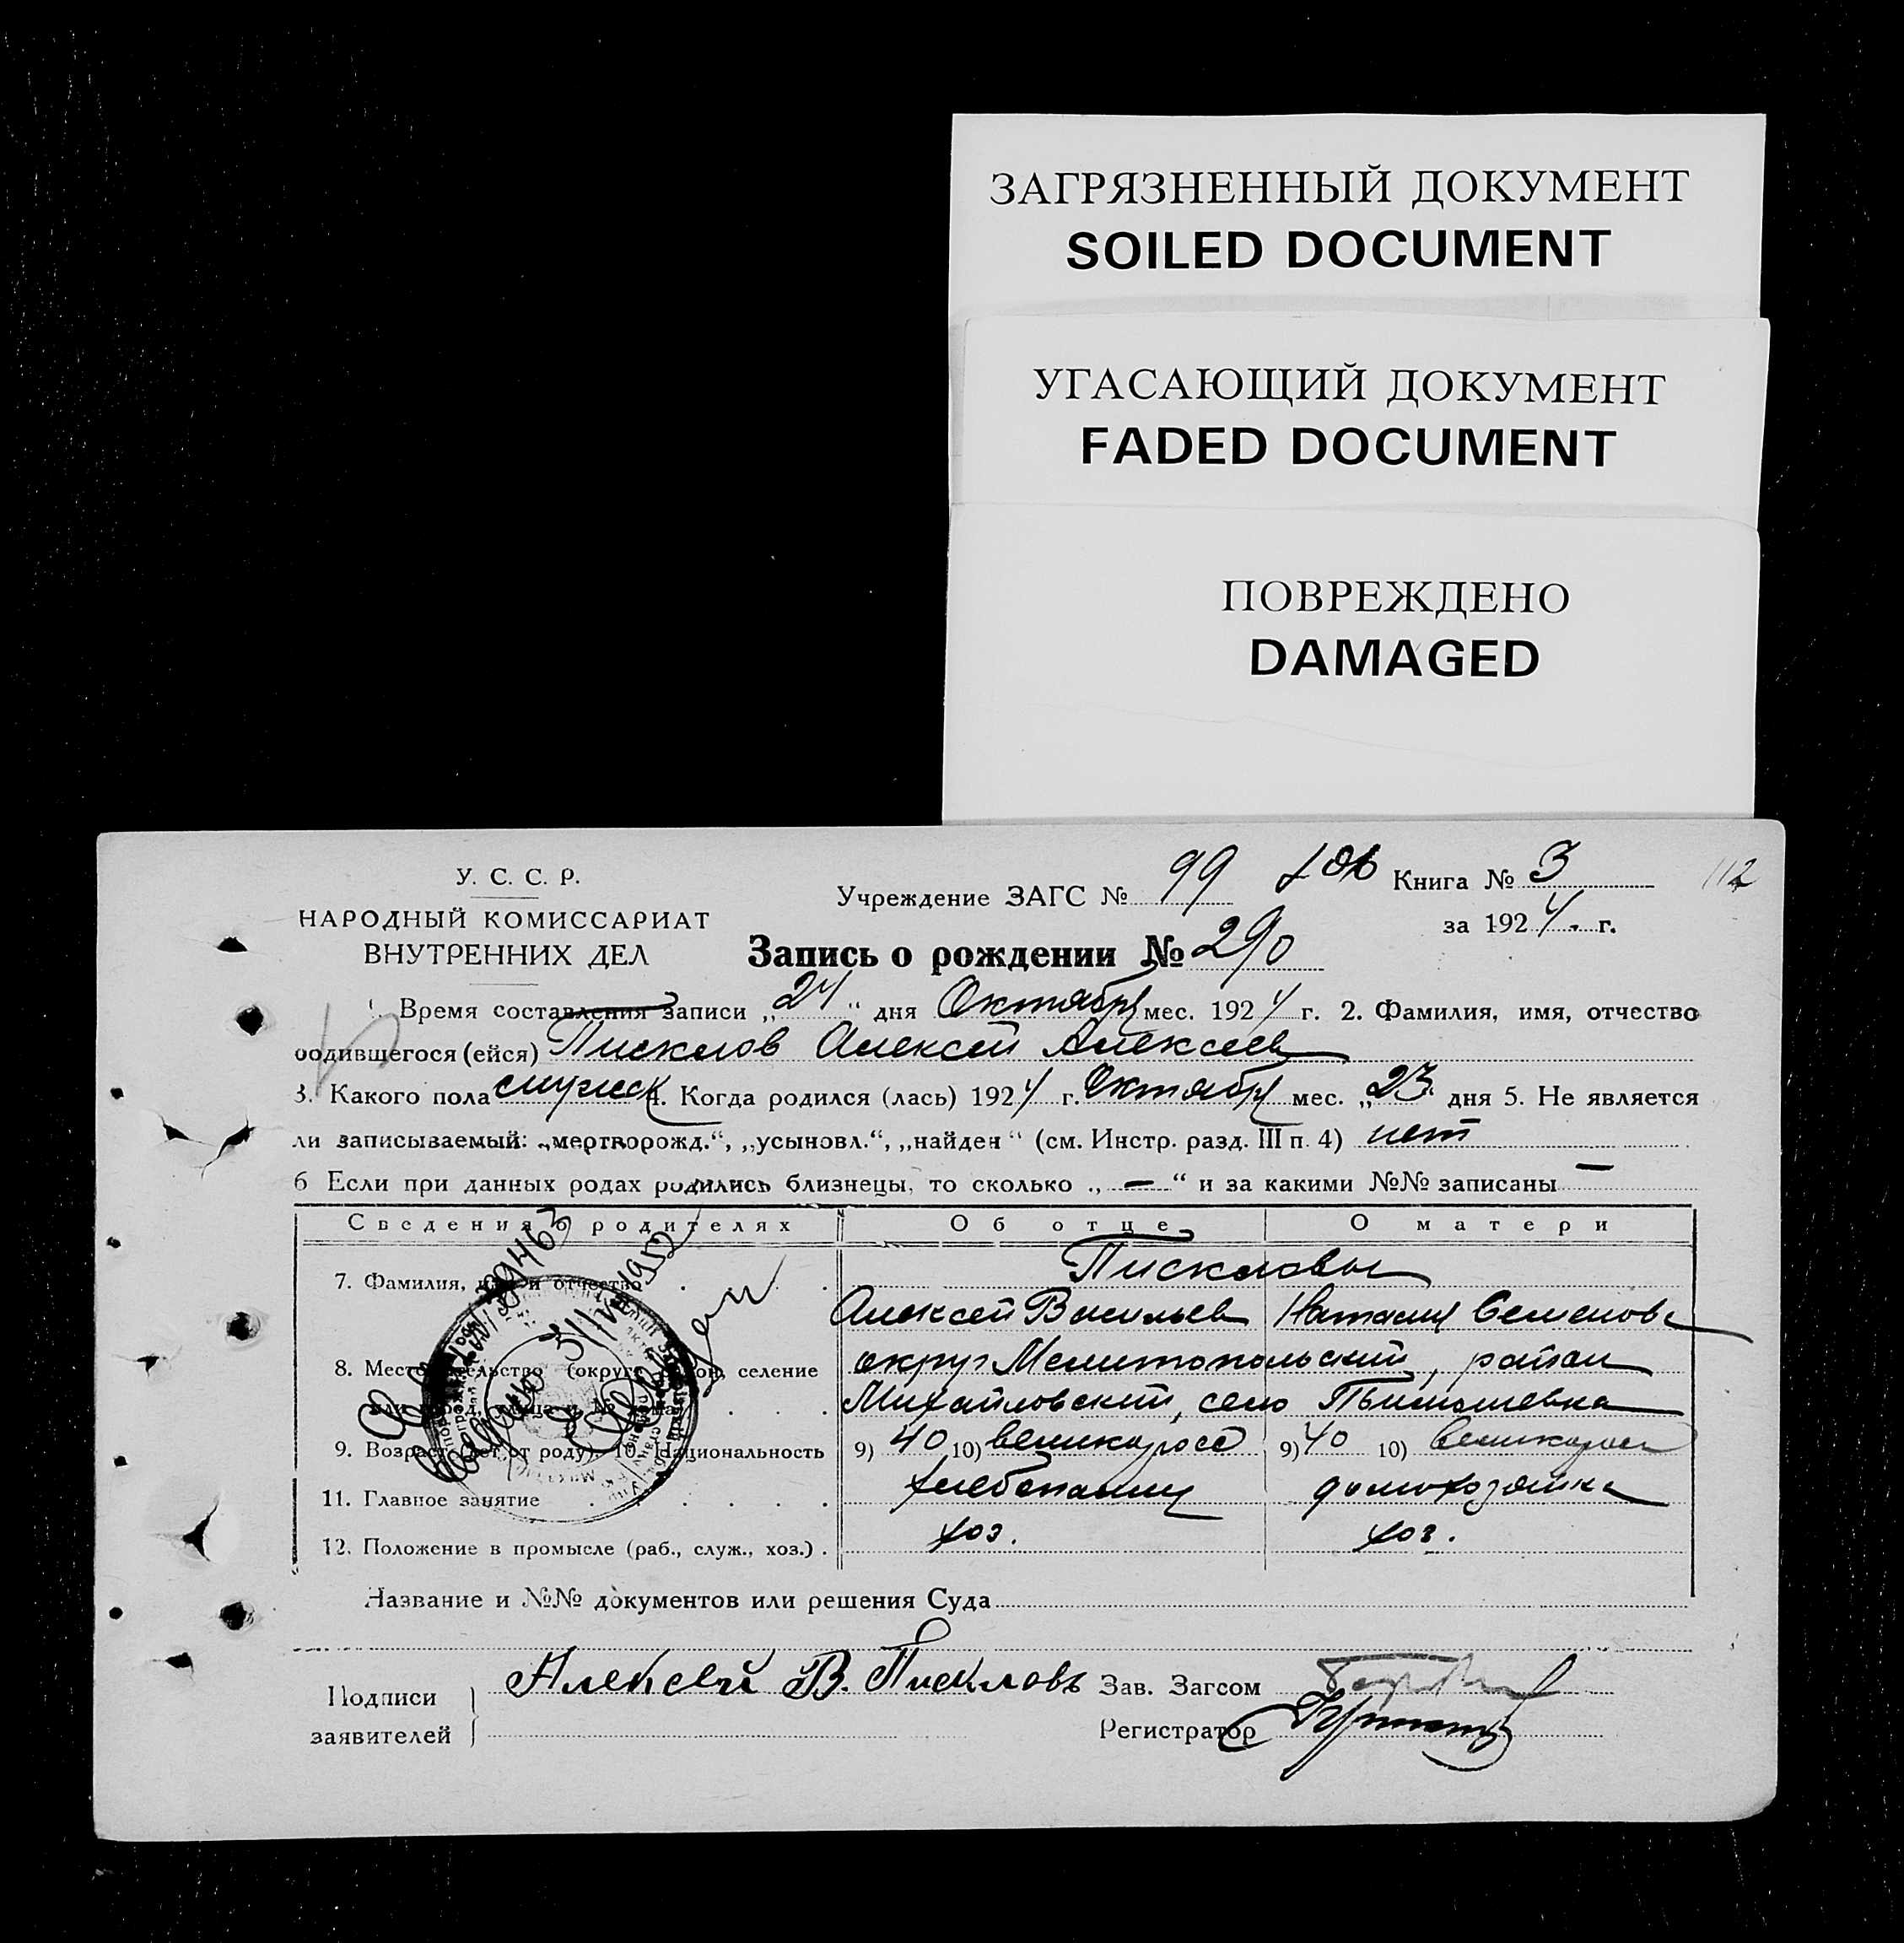 ЗАГРЯЗНЕННЫЙ ДОКУМЕНТ
SOILED DOCUMENT
УГАСАЮЩИЙ ДОКУМЕНТ
FADED DOCUMENT
ПОВРЕЖДЕНО
DAMAGED
У. С. С. Р.
НАРОДНЫЙ КОМИССАРИАТ
ВНУТРЕННИХ ДЕЛ
Учреждение ЗАГС № 99 Книга № 3 112
за 1924 г.
Запись о рождении № 290
Время составления записи „24“ дня Октября мес. 1924 г. 2. Фамилия, имя, отчество
родившегося (ейся) Писклов Алексей Алексеев
3. Какого пола мужск 4. Когда родился (лась) 1924 г. Октября мес. „23“ дня 5. Не является
ли записываемый: „мертворожд.“, „усыновл.“, „найден“ (см. Инстр. разд. III п. 4) нет
6 Если при данных родах родились близнецы, то сколько „—“ и за какими №№ записаны —
Сведения о родителях Об отце О матери
7. Фамилия, имя и отчество Пискловы
Алексей Васильев Наталия Семенова
8. Местожительство (округ, район, селение округ Мелитопольский, район
или город, улица и № дома) Михайловский, село
9. Возраст (лет от роду) 10. Национальность 9) 40 10) великоросс 9) 40 10) великоросс
11. Главное занятие хлебопашец домохозяйка
12. Положение в промысле (раб., служ., хоз.) хоз. хоз.
Название и №№ документов или решения Суда
Подписи
заявителей
Алексей В. Пискловъ
Зав. Загсом
Регистратор